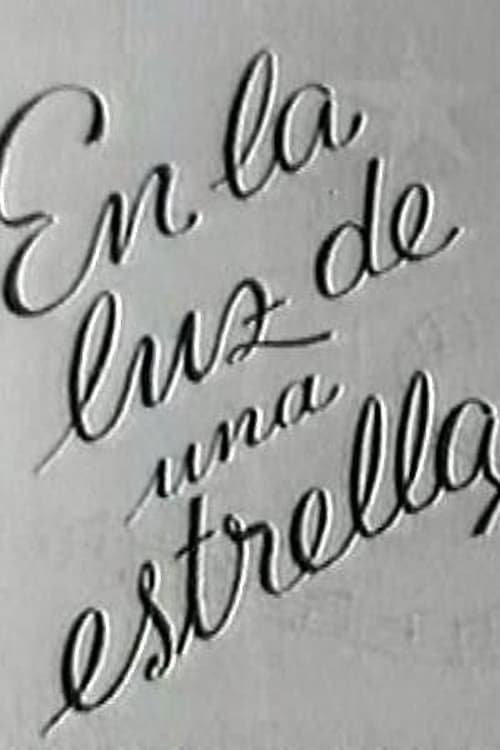 En la
luz de
una
estrella